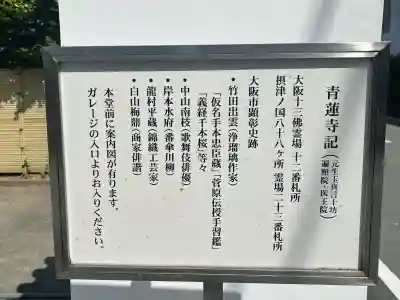 青蓮寺記(元生玉真言十坊 遍照院・医王院)
大阪十三佛霊場 十二番札所
摂津ノ国八十八ヶ所 霊場二十三番札所
大阪市顕彰史跡
•竹田出雲(浄瑠璃作家)
「仮名手本忠臣蔵」「菅原伝授手習鑑」
「義経千本桜」等々
•中山南枝(歌舞伎俳優)
•岸本水府(番傘川柳)
•龍村平蔵(錦織工芸家)
•白山梅鼎(商家俳諧)
本堂前に案内図が有ります。
ガレージの入口よりお入りください。